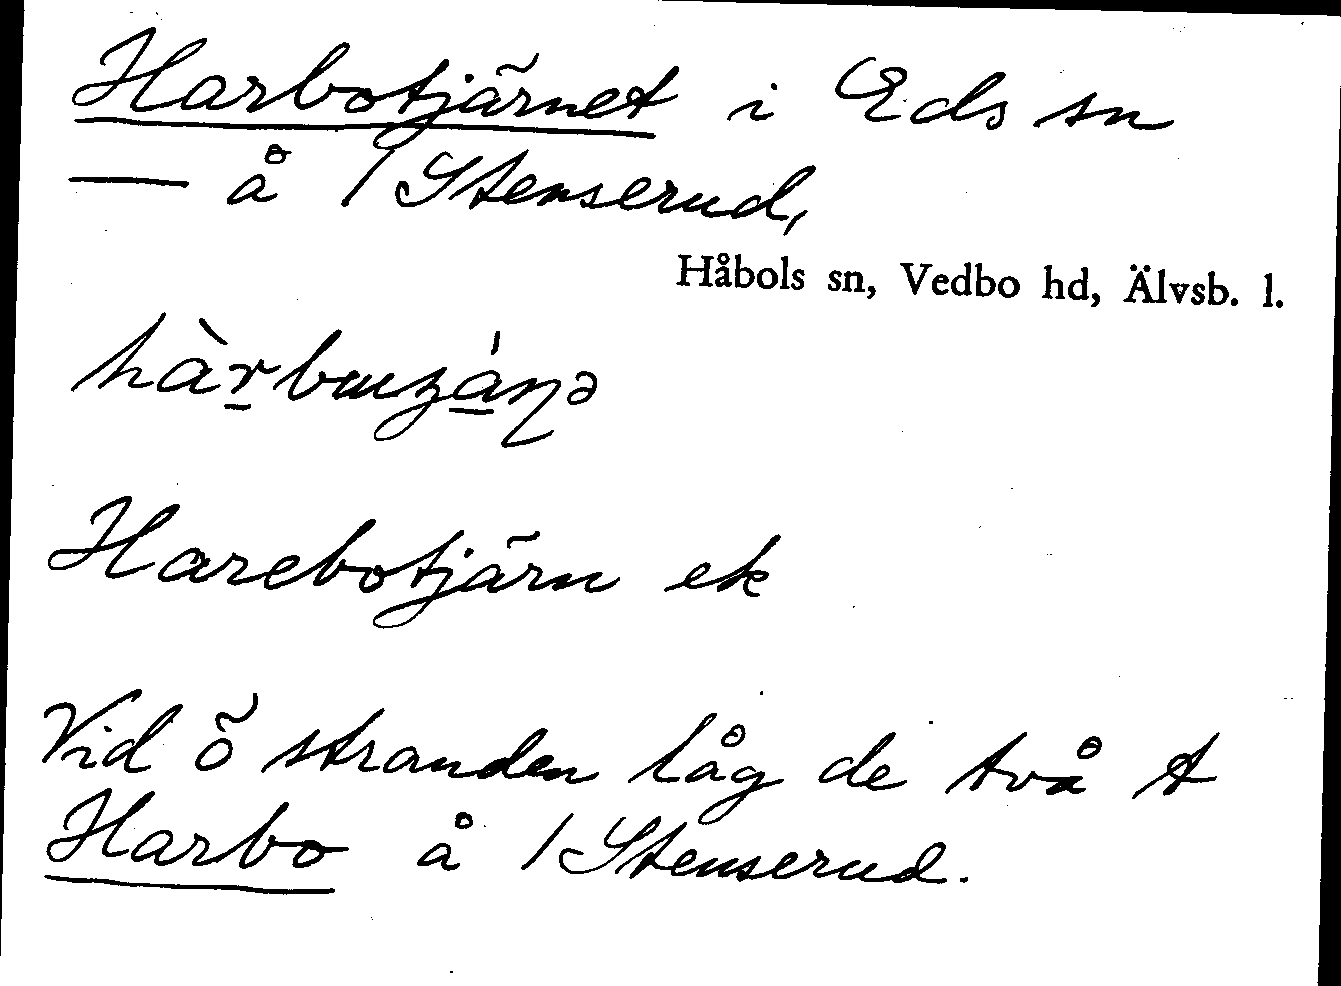 Harbotjärnet i Eds sn
— å 1/1 Stenserud,
Håbols sn, Vedbo hd, Älvsb. l.
Harebotjärn ek
Vid ö stranden låg de två t
Harbo å 1/1 Stenserud.